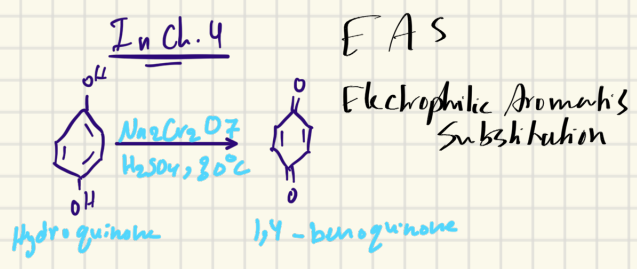 In Ch. 4
E A S
Electrophilic Aromatis
Substitution
OH
OH
Na2Cr2O7
H2SO4, 30°C
O
O
Hydroquinone
1,4-benoquinone